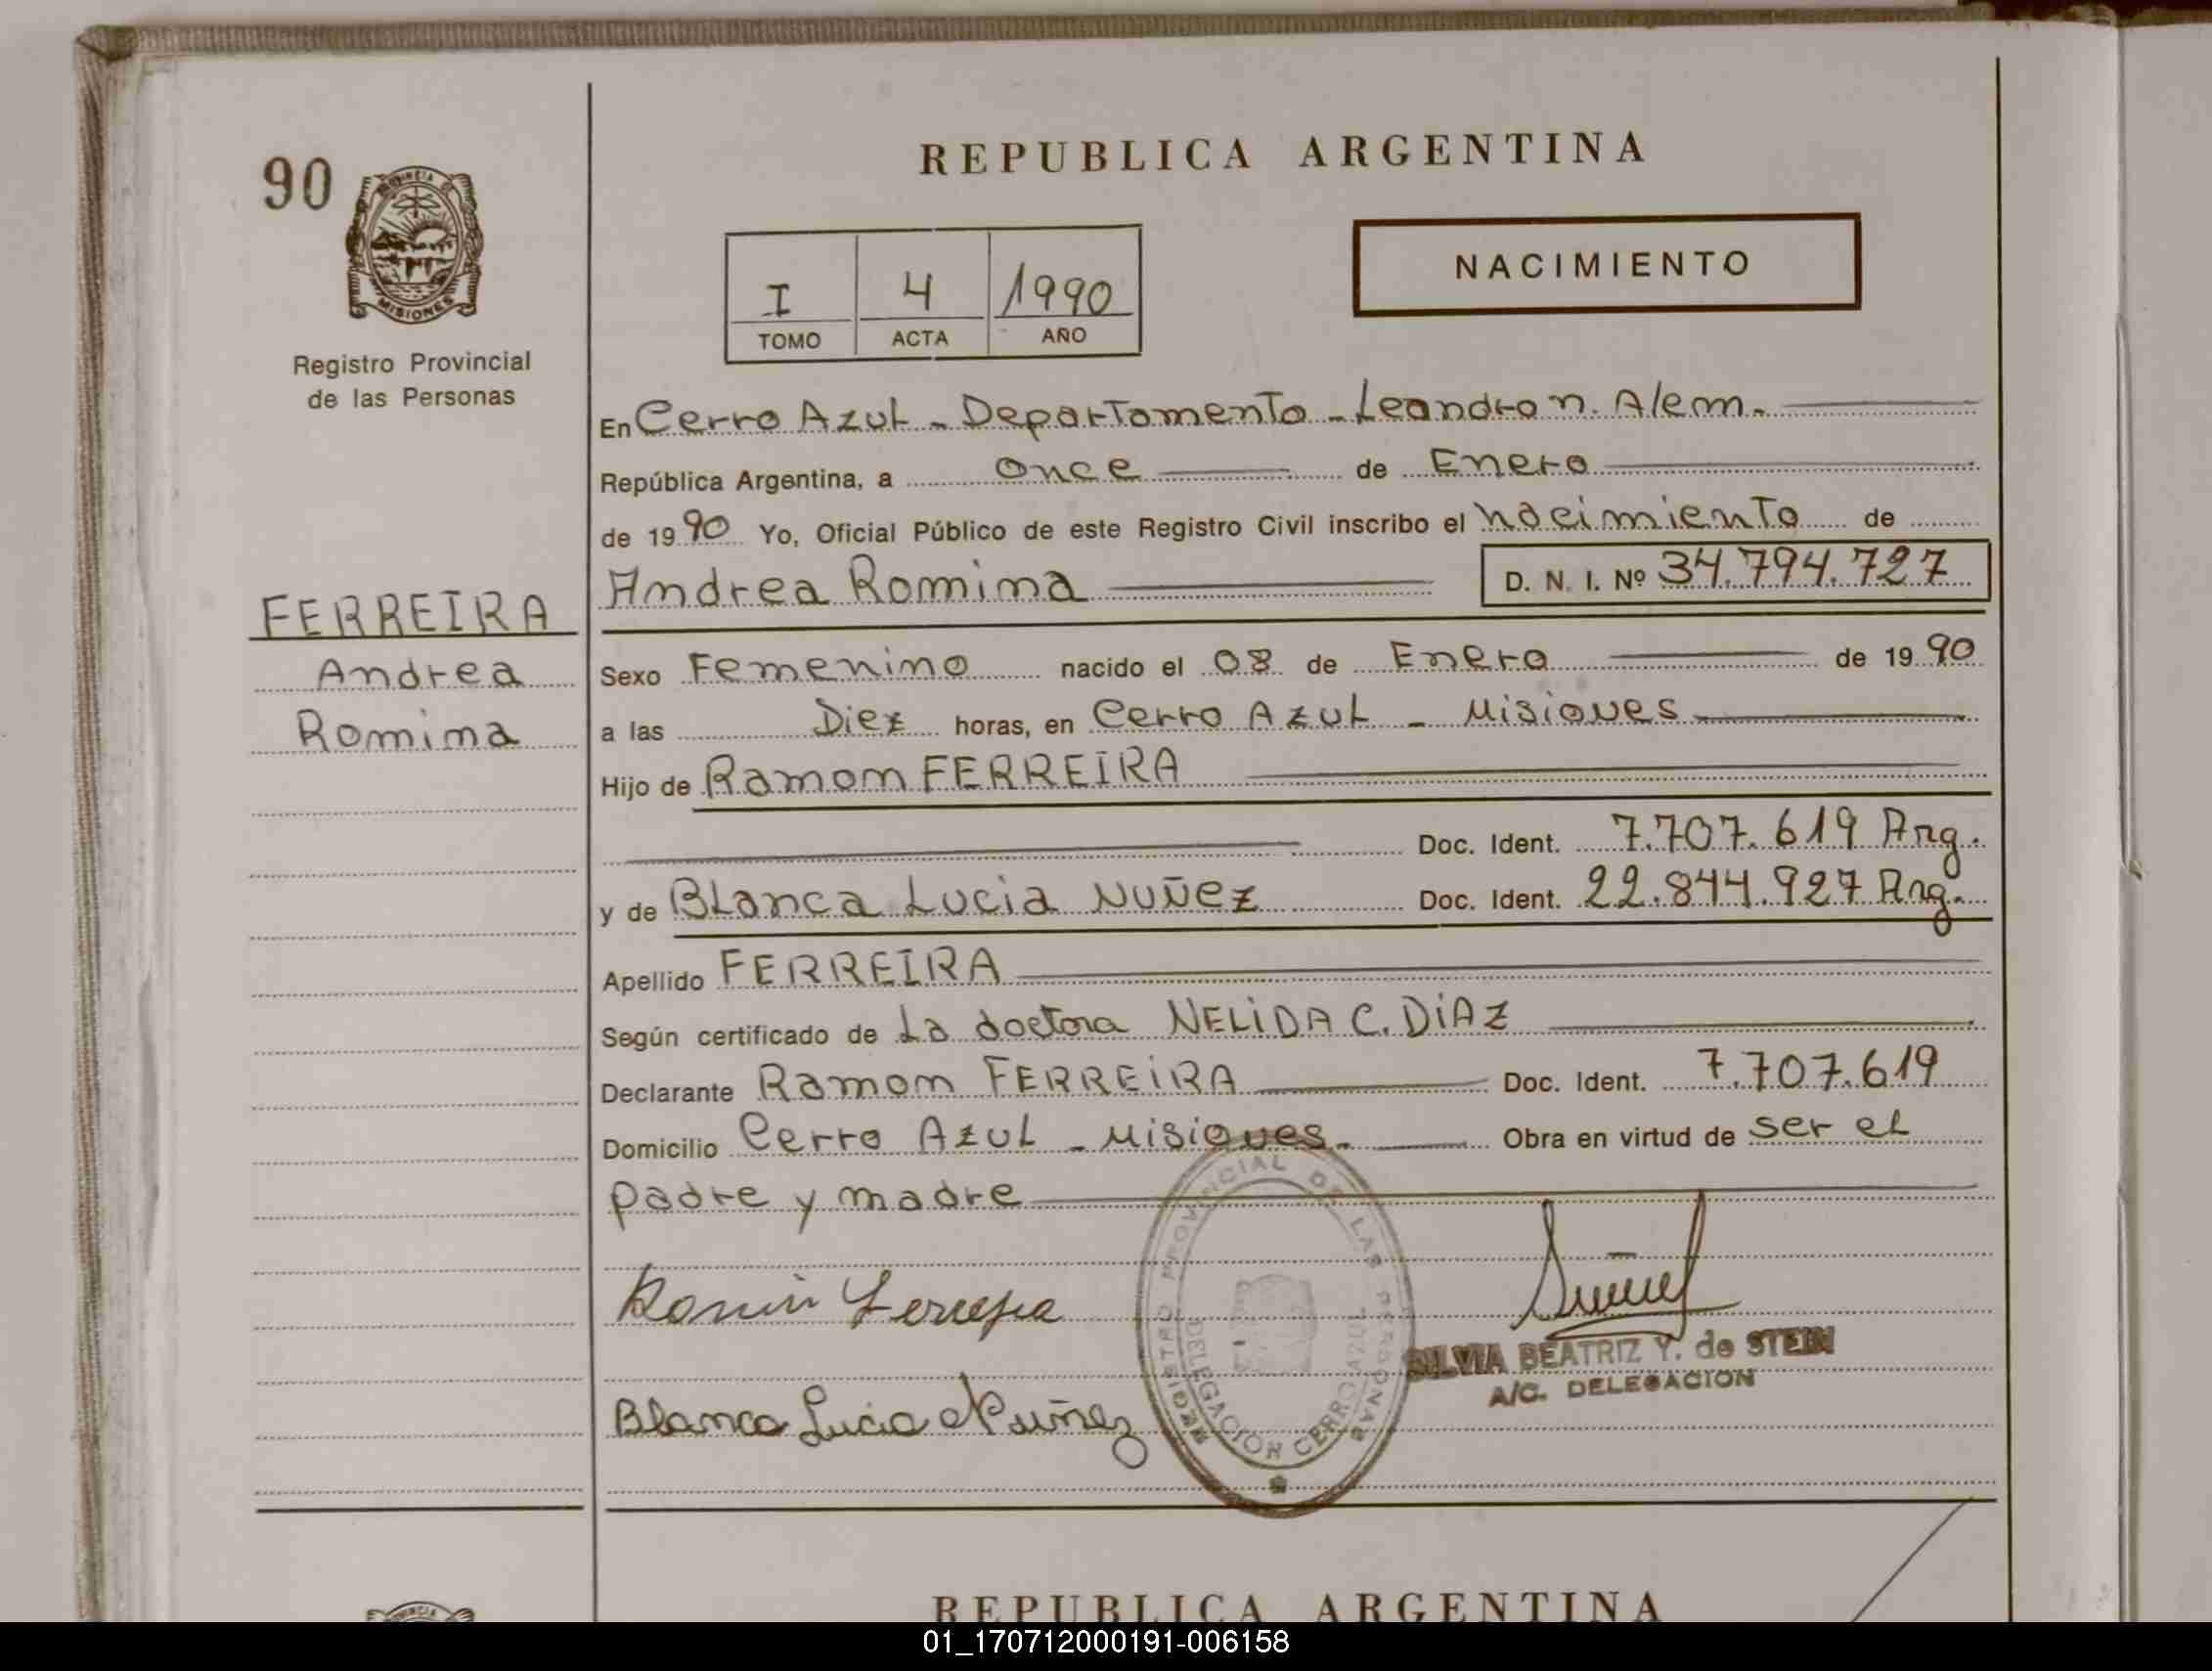 90
PROVINCIA DE
MISIONES
Registro Provincial
de las Personas
FERREIRA
Andrea
Romina
REPUBLICA ARGENTINA
I 4 1990
TOMO ACTA AÑO
NACIMIENTO
En Cerro Azul - Departamento - Leandro N. Alem.
República Argentina, a Once de Enero
de 1990 Yo, Oficial Público de este Registro Civil inscribo el nacimiento de
Andrea Romina D. N. I. Nº 34.794.727
Sexo Femenino nacido el 08 de Enero de 1990
a las Diez horas, en Cerro Azul - Misiones
Hijo de Ramon FERREIRA
Doc. Ident. 7.707.619 Arg.
y de Blanca Lucia Nuñez Doc. Ident. 22.844.927 Arg.
Apellido FERREIRA
Según certificado de La doctora NELIDA C. DIAZ
Declarante Ramon FERREIRA Doc. Ident. 7.707.619
Domicilio Cerro Azul - Misiones. Obra en virtud de ser el
padre y madre
REGISTRO PROVINCIAL DE LAS PERSONAS
DELEGACION CERRO AZUL
Blanca Lucia Nuñez
SILVIA BEATRIZ Y. de STEIN
A/C. DELEGACION
REPUBLICA ARGENTINA
01_170712000191-006158